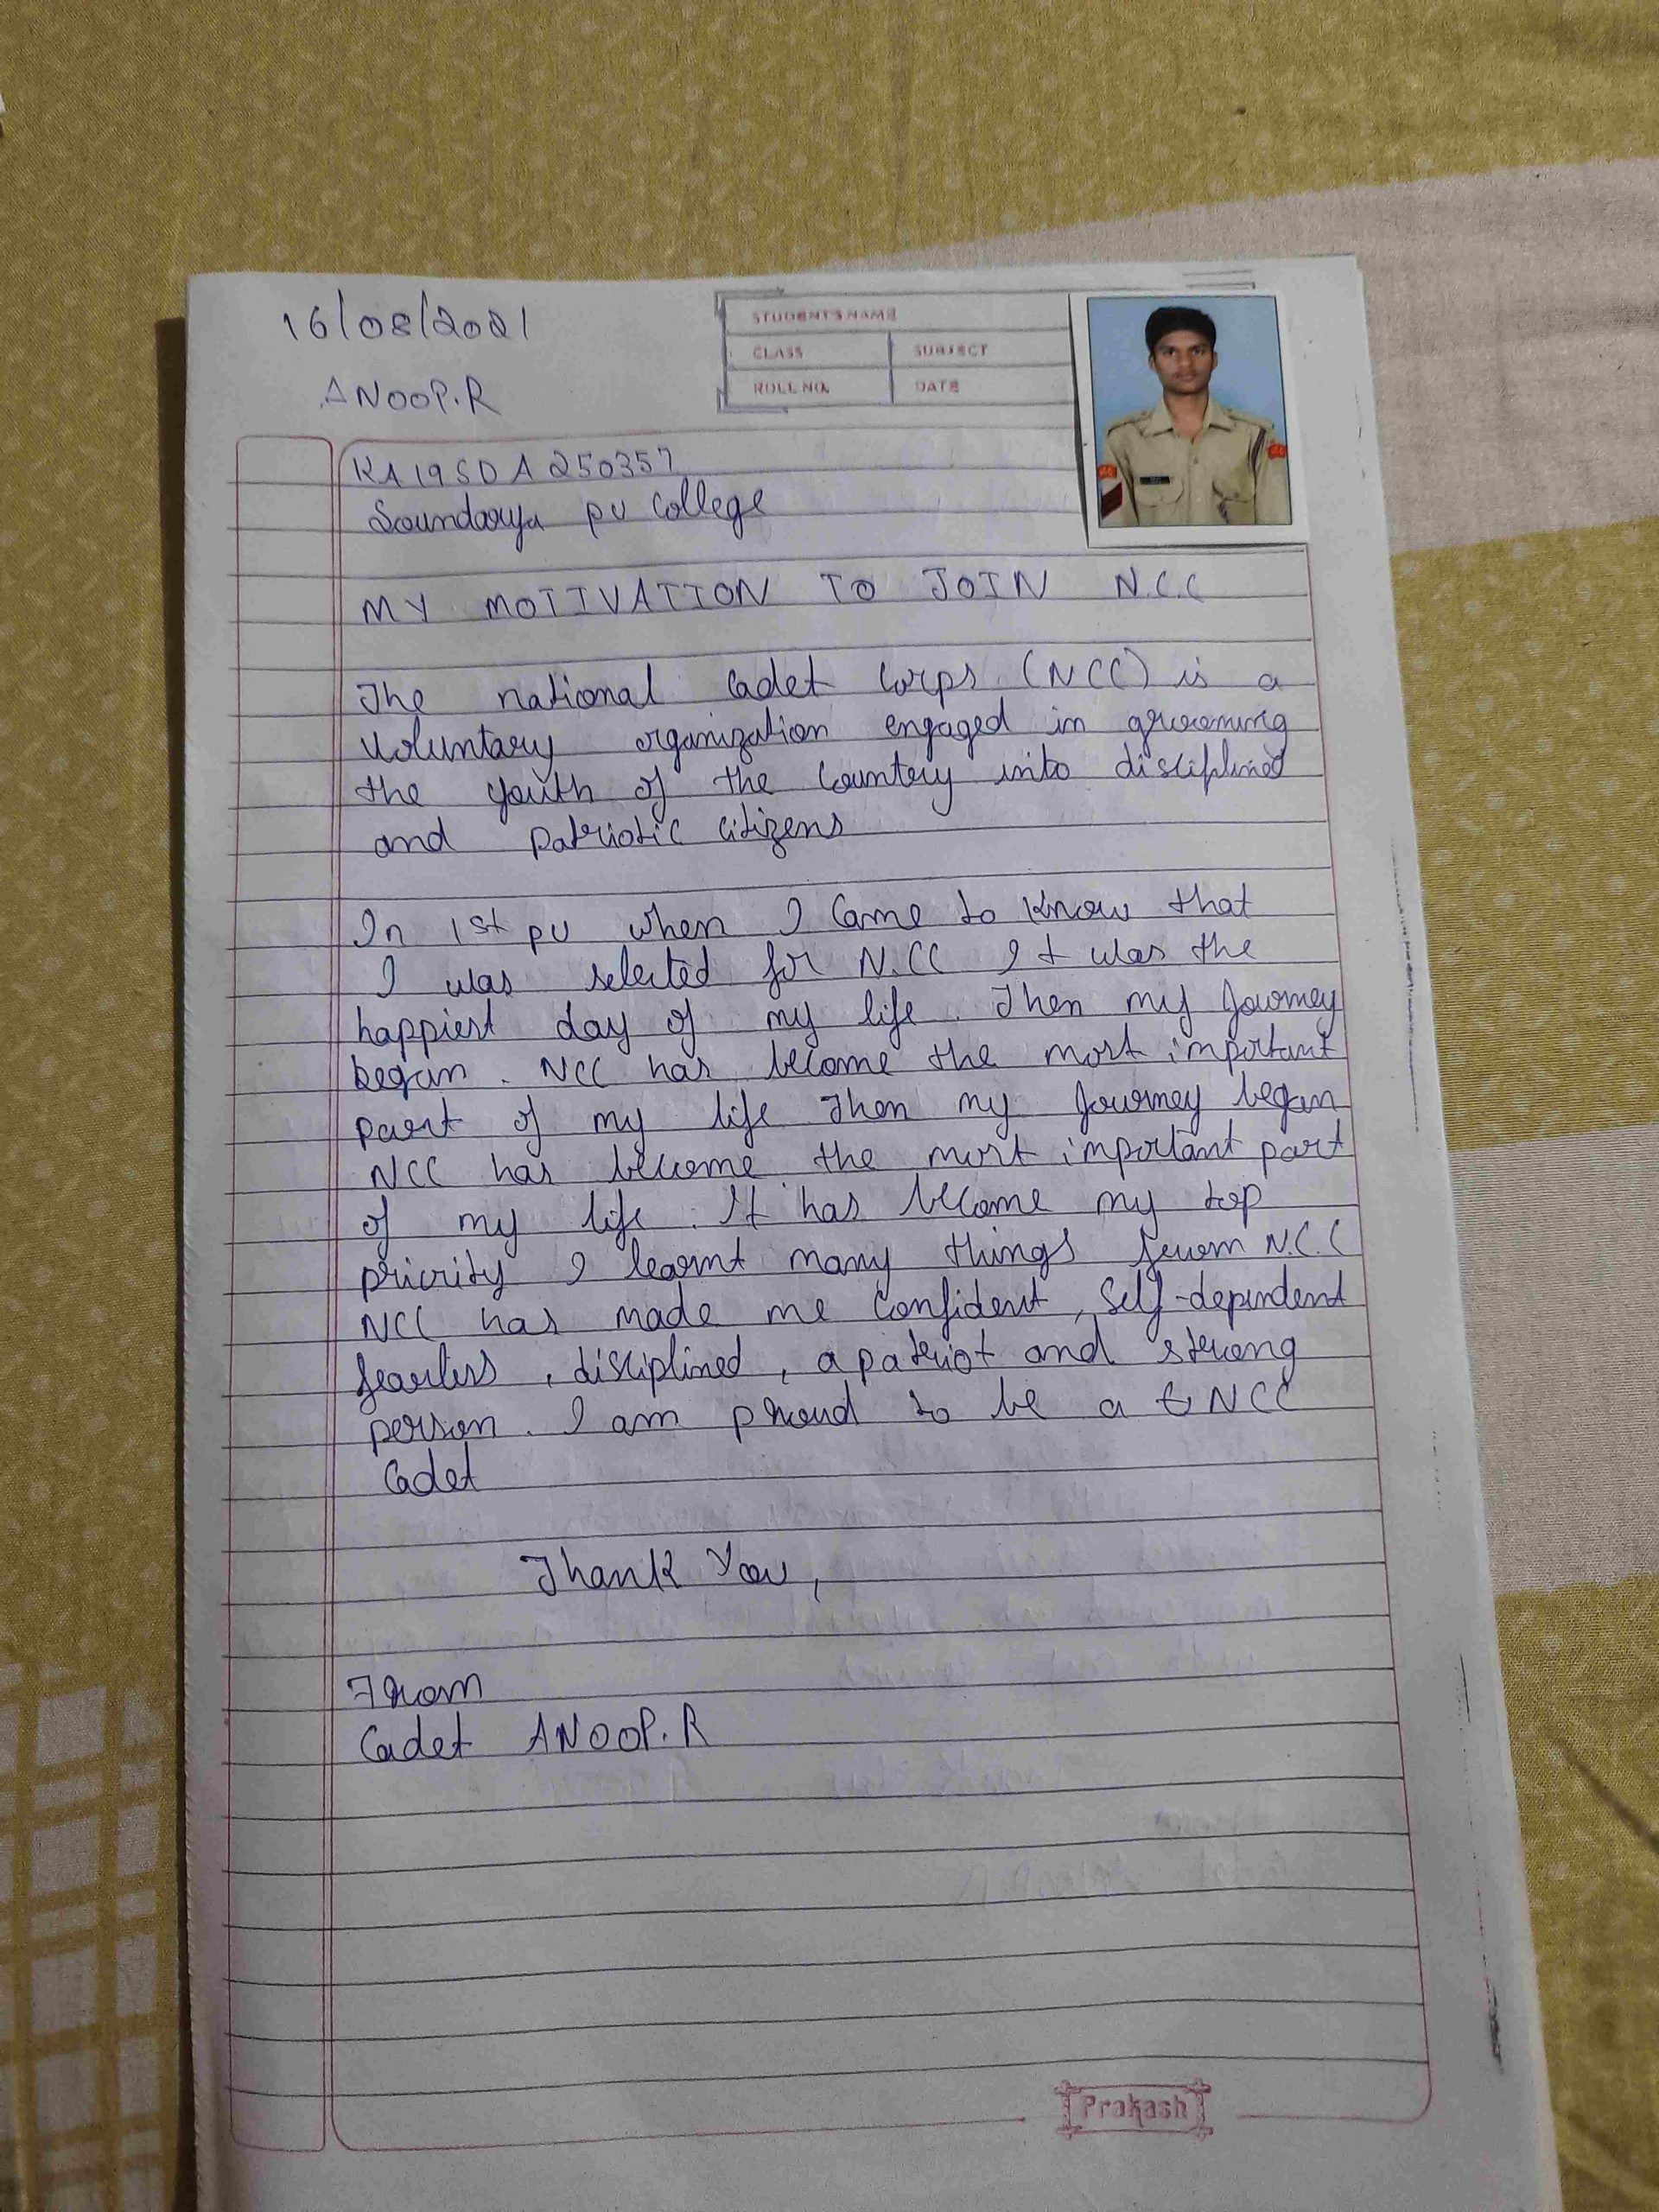 16/08/2021
STUDENT'S NAME
CLASS SUBJECT
ROLL NO. DATE
ANOOP.R
KA19SDA250357
Soundarya pu College
MY MOTIVATION TO JOIN N.C.C
The national Cadet Corps (NCC) is a
voluntary organization engaged in grooming
the youth of the Country into disciplined
and patriotic citizens
In 1st pu when I Came to know that
I was selected for N.CC It was the
happiest day of my life. Then my Journey
began. NCC has become the most important
part of my life Then my Journey began
NCC has become the most important part
of my life. It has become my top
priority I learnt many things from N.C.C
NCC has made me Confident, Self-dependent
fearless, disciplined, a patriot and strong
person. I am proud to be a NCC
Cadet
Thank You,
From
Cadet ANOOP.R
Prakash